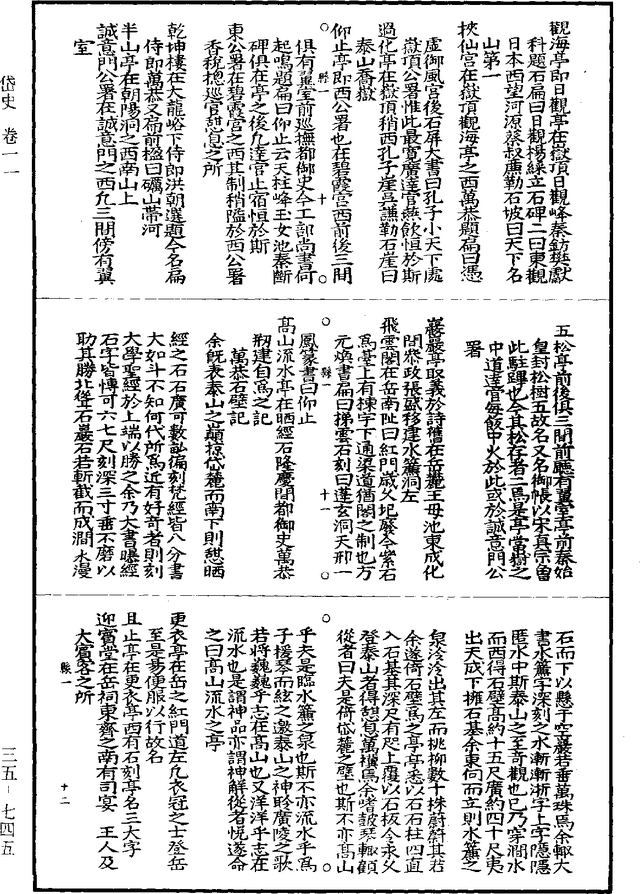 觀海亭即日觀亭在嶽頂日觀峰秦鈁樊獻
科題石扁曰日觀揚綵立石碑二曰東觀
日本西望河源蔡叆廉勒石坡曰天下名
山第一
挾仙宫在嶽頂觀海亭之西萬恭題扁曰憑
虛御風宫後石屏大書曰孔子小天下處
嶽頂公署惟此最寬廣達官燕飲恒於斯
過化亭在嶽頂稍西孔子崖吳謙勒石崖曰
泰山喬嶽
仰止亭即西公署也在碧霞宫西前後三間
俱有翼室前巡撫都御史今工部尚書何
起鳴題扁曰仰止云天柱峰玉女池秦斷
碑俱在亭之後凡達官止宿恒於斯
東公署在碧霞宫之西其制稍隘於西公署
香稅總巡官憇息之所
乾坤樓在大龍峪下侍郎洪朝選題今名扁
侍郎萬恭又扁前楹曰礪山帶河
半山亭在朝陽洞之西南山上
誠意門公署在誠意門之西凡三間傍有翼
室
五松亭前後俱三間前廳有翼室亭前秦始
皇封松樹五故名又名御帳以宋真宗曽
此駐蹕也今其松存者二焉是亭當嶽之
中道達官每飯中火於此或於誠意門公
署
巖巖亭取義於詩舊在岳麓王母池東成化
間叅政張盛移建水簾洞左
飛雲閣在岳南趾曰紅門歲乆圮廢今案石
為臺上有棟宇下通渠道猶閣之制也方
元煥書扁曰梯雲石刻曰蓬玄洞天邢一
鳳篆書曰仰止
高山流水亭在晒經石隆慶間都御史萬恭
剏建自為之記
萬恭石壁記
余旣表泰山之巔掠岱麓而南下則憇晒
經之石石廣可數畆徧刻梵經皆八分書
大如斗不知何代所為近有好奇者則刻
大學聖經於上端以勝之余乃大書曝經
石字皆博可六七尺刻深三寸垂不磨以
助其勝北徙石巖石若斬截而成澗水漫
石而下以懸于空巖若垂萬珠焉余輙大
書水簾字深刻之水漸漸浙字上字隱隱
匿水中斯泰山之至奇觀也已乃穿澗水
而西得石壁高約十五尺廣約四十尺夷
出天成下擁石基余東向而立則水簾之
泉泠泠出其左而桃柳數十株蔚蔚其右
余遂倚石壁為之亭亭悉以石石柱四直
入石基其深尺有咫上覆以石板令永乆
登泰山者得憩息萬㰙焉余嗜鼓琴輙顧
從者曰夫是倚岱麓之壁也斯不亦高山
乎夫是臨水簾之泉也斯不亦流水乎為
子援琴而絃之邀泰山之神聆廣陵之歌
若將巍巍乎志在高山也又洋洋乎志在
流水也是謂神品亦謂神解從者恱遂命
之曰高山流水之亭
更衣亭在岳之紅門道左凡衣冠之士登岳
至是易便服以行故名
且止亭在更衣亭西有石刻亭名三大字
迎賓堂在岳祠東齊之南有司宴　王人及
大賓客之所
岱史　卷一一
縣一
十
縣一
十一
縣一
十二
三五－七四五